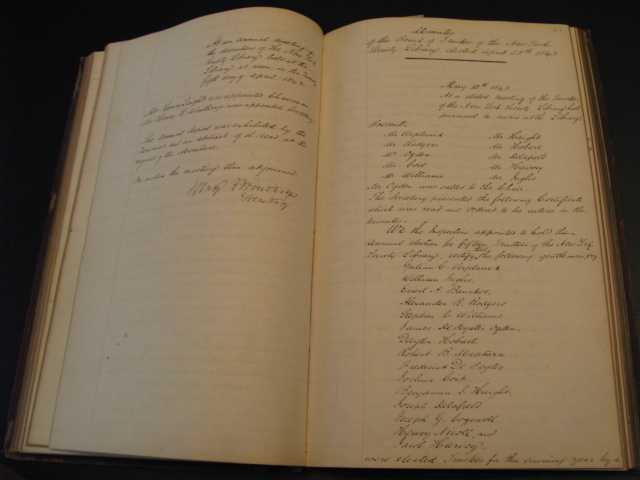 At an annual meeting of
the Members of the New York
Society Library held at the
Library at noon, on the Tuesday
fifth day of April 1843
Mr Haight was appointed Chairman
Mr Henry R. Winthrop was appointed Secretary
The annual report was exhibited by the
Treasurer and an abstract of it read, at the
request of the Members.
On motion the meeting then adjourned.
Winthrop
Secretary
Minutes
of the Board of Trustees of the New York
Society Library, elected April 25th 1843
May 10th 1843
At a stated meeting of the Trustees
of the New York Society Library held
pursuant to notice at the Library
Present
Mr Verplanck Mr Haight
Mr Rodgers Mr Hobart
Mr Ogden Mr Delafield
Mr Coit Mr Harvey
Mr Williams Mr Inglis
Mr Ogden was called to the Chair.
The Secretary presented the following Certificate
which was read and ordered to be entered on the
minutes.
We the Inspectors appointed to hold the
annual election for fifteen Trustees of the New York
Society Library, certify that the following gentlemen, viz
Gulian C. Verplanck
William Inglis
Evert A. Bancker
Alexander R. Rodgers
Stephen C. Williams
James De Peyster Ogden
Dayton Hobart
Robert B. Minturn
Frederic De Peyster
Joshua Coit
Benjamin I. Haight
Joseph Delafield
Joseph G. Cogswell
Henry Nicoll, and
Jacob Harvey,
were elected Trustees for the ensuing year by a